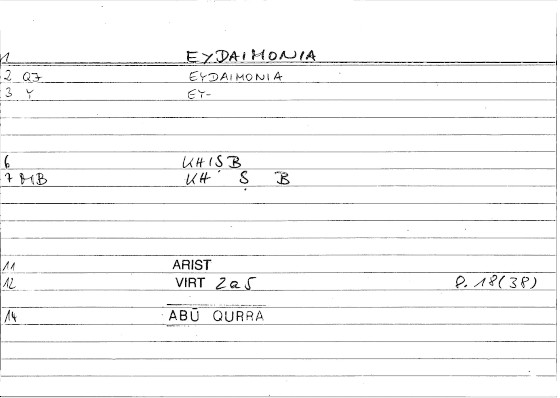 1 EYDAIMONIA
2 QJ EYDAIMONIA
3 Y EY-
6 KHISB
7 MB KH Ṣ B
11 ARIST
12 VIRT 2a5 P. 18(38)
14 ABŪ QURRA